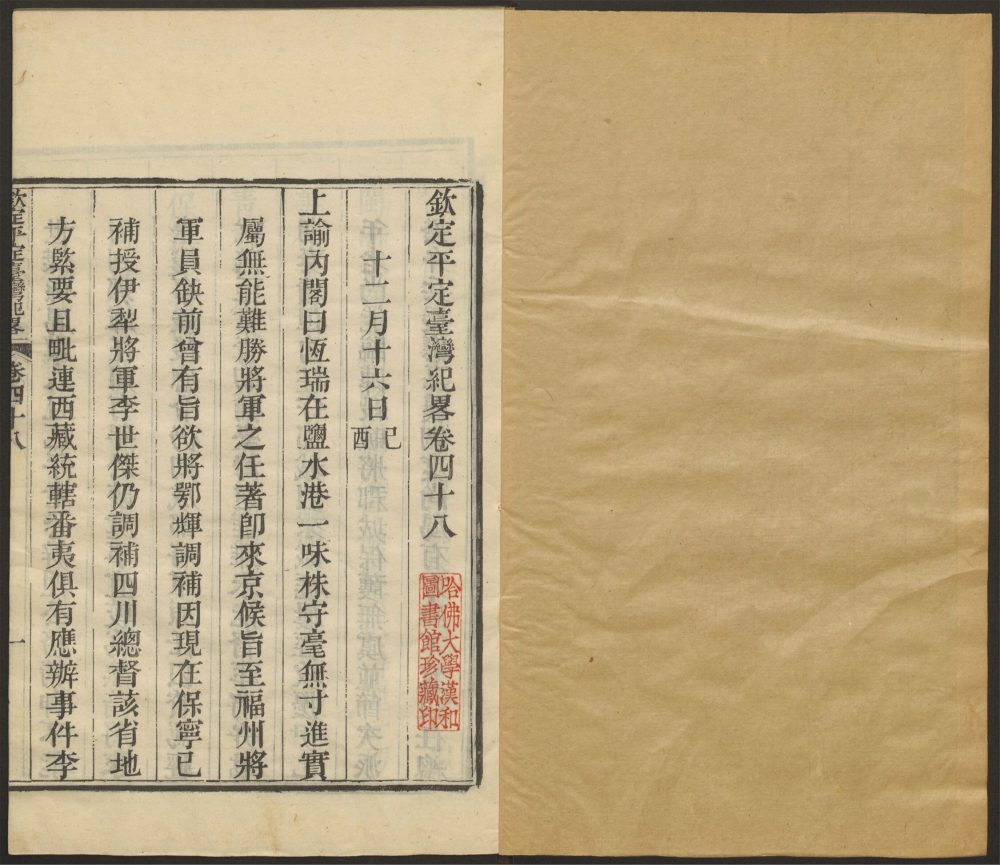 欽定平定臺灣紀畧卷四十八
哈佛大學漢和
圖書館珍藏印
十二月十六日己酉
上諭內閣曰恆瑞在鹽水港一味株守毫無寸進實
屬無能難勝將軍之任著即來京候旨至福州將
軍員缺前曾有旨欲將鄂輝調補因現在保寧已
補授伊犁將軍李世傑仍調補四川總督該省地
方緊要且毗連西藏統轄番夷俱有應辦事件李
欽定平定臺灣紀畧
卷四十八
一